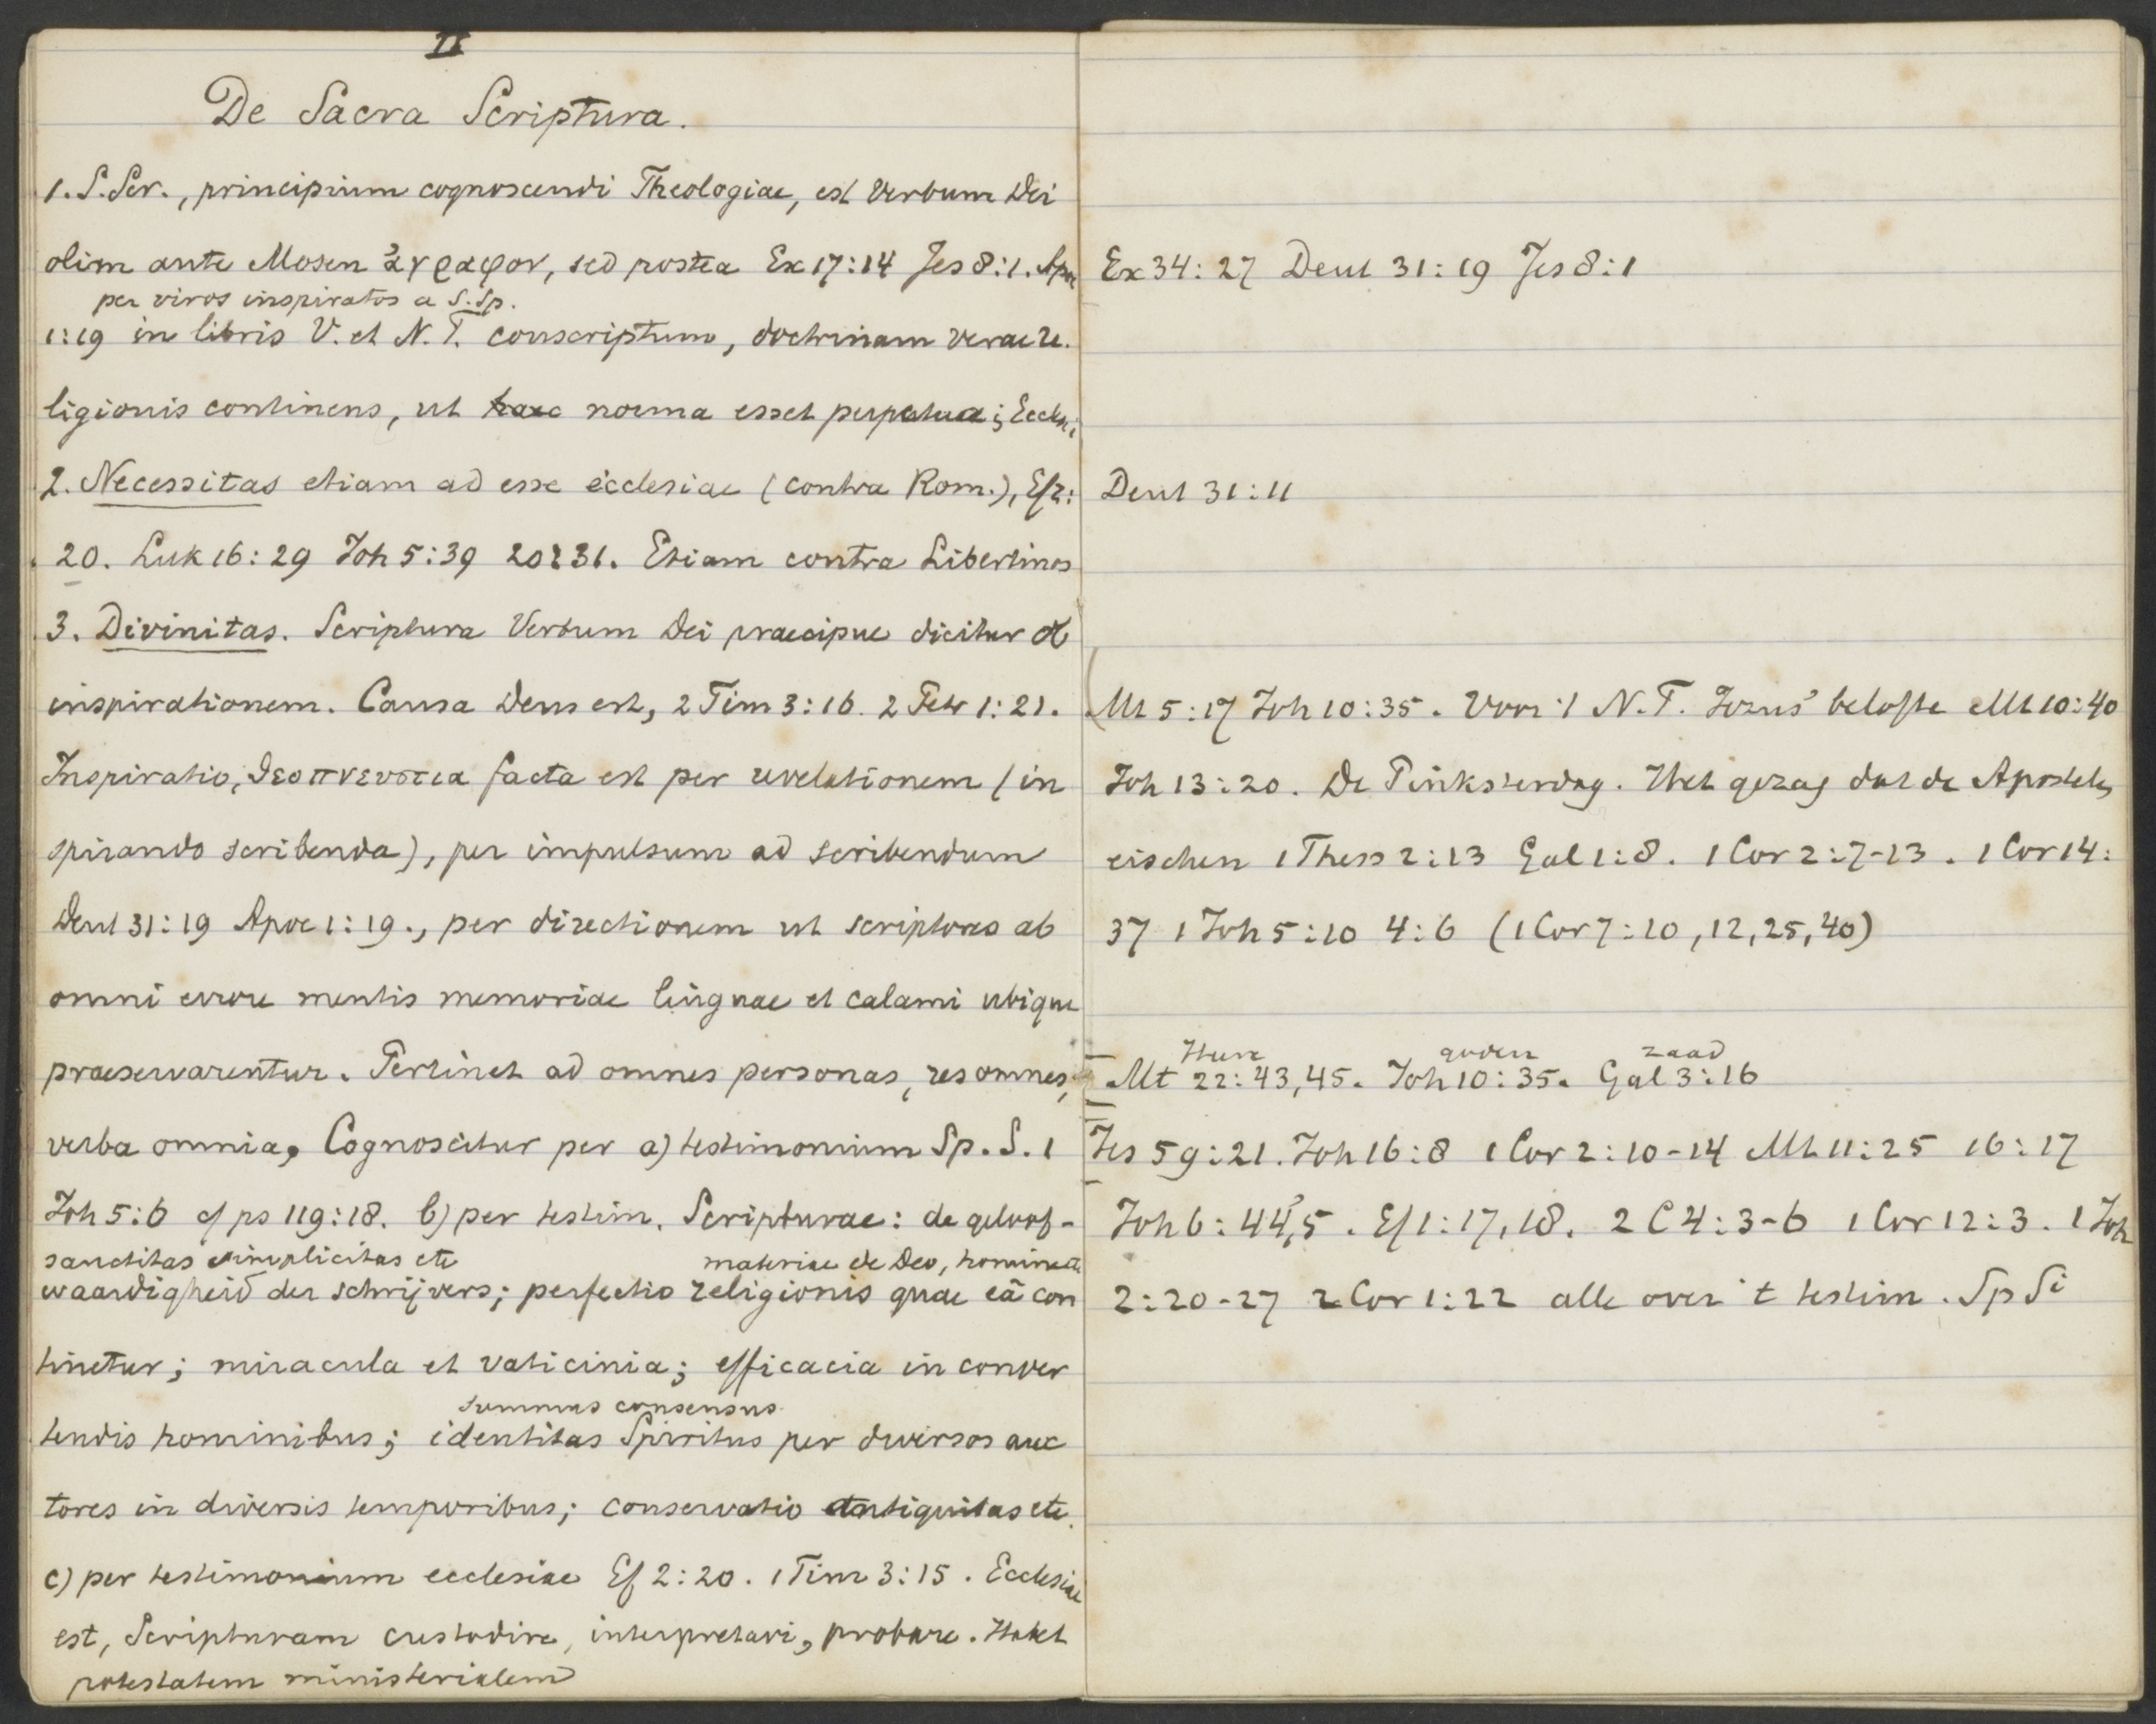 II
De Sacra Scriptura.
1. S. Scr., principium cognoscendi Theologiae, est Verbum Dei
olim ante Mosen ἄγραφον, sed postea Ex 17:14 Jes 8:1. Apoc
per viros inspiratos a S. Sp.
1:19 in libris V. et N. T. conscriptum, doctrinam verae re-
ligionis continens, ut norma esset perpetua; Eccles.
2. Necessitas etiam ad esse ecclesiae (contra Rom.), Ef 2:
20. Luk 16:29 Joh 5:39 20:31. Etiam contra Libertinos
3. Divinitas. Scriptura Verbum Dei praecipue dicitur ob
inspirationem. Causa Deus est, 2 Tim 3:16. 2 Petr 1:21.
Inspiratio, θεοπνευστια facta est per revelationem (in
spirando scribenda), per impulsum ad scribendum
Deut 31:19 Apoc 1:19., per directionem ut scriptores ab
omni errore mentis memoriae linguae et calami ubique
praeservarentur. Pertinet ad omnes personas, res omnes,
verba omnia, Cognoscitur per a) testimonium Sp. S. 1
Joh 5:6 cf ps 119:18. b) per testim. Scripturae: de geloof-
sanctitas simplicitas etc materiae de Deo, homine etc
waardigheid der schrijvers; perfectio religionis quae eâ con
tinetur; miracula et vaticinia; efficacia in conver
summus consensus
tendis hominibus; identitas Spiritus per diversos auc
tores in diversis temporibus; conservatio antiquitas etc.
c) per testimonium ecclesiae Ef 2:20. 1 Tim 3:15. Ecclesiae
est, Scripturam custodire, interpretari, probare. Habet
potestatem ministerialem
Ex 34:27 Deut 31:19 Jes 8:1
Deut 31:11
(Mt 5:17 Joh 10:35. Voor 't N.T. Jezus' belofte Mt 10:40
Joh 13:20. De Pinksterdag. Het gezag dat de Apostelen
eischen 1 Thess 2:13 Gal 1:8. 1 Cor 2:7-13. 1 Cor 14:
37 1 Joh 5:10 4:6 (1 Cor 7:10,12,25,40)
Heere goden zaad
Mt 22:43,45. Joh 10:35. Gal 3:16
Jes 59:21. Joh 16:8 1 Cor 2:10-14 Mt 11:25 16:17
Joh 6:44,5. Ef 1:17,18. 2 C 4:3-6 1 Cor 12:3. 1 Joh
2:20-27 2 Cor 1:22 alle over 't testim. Sp Si